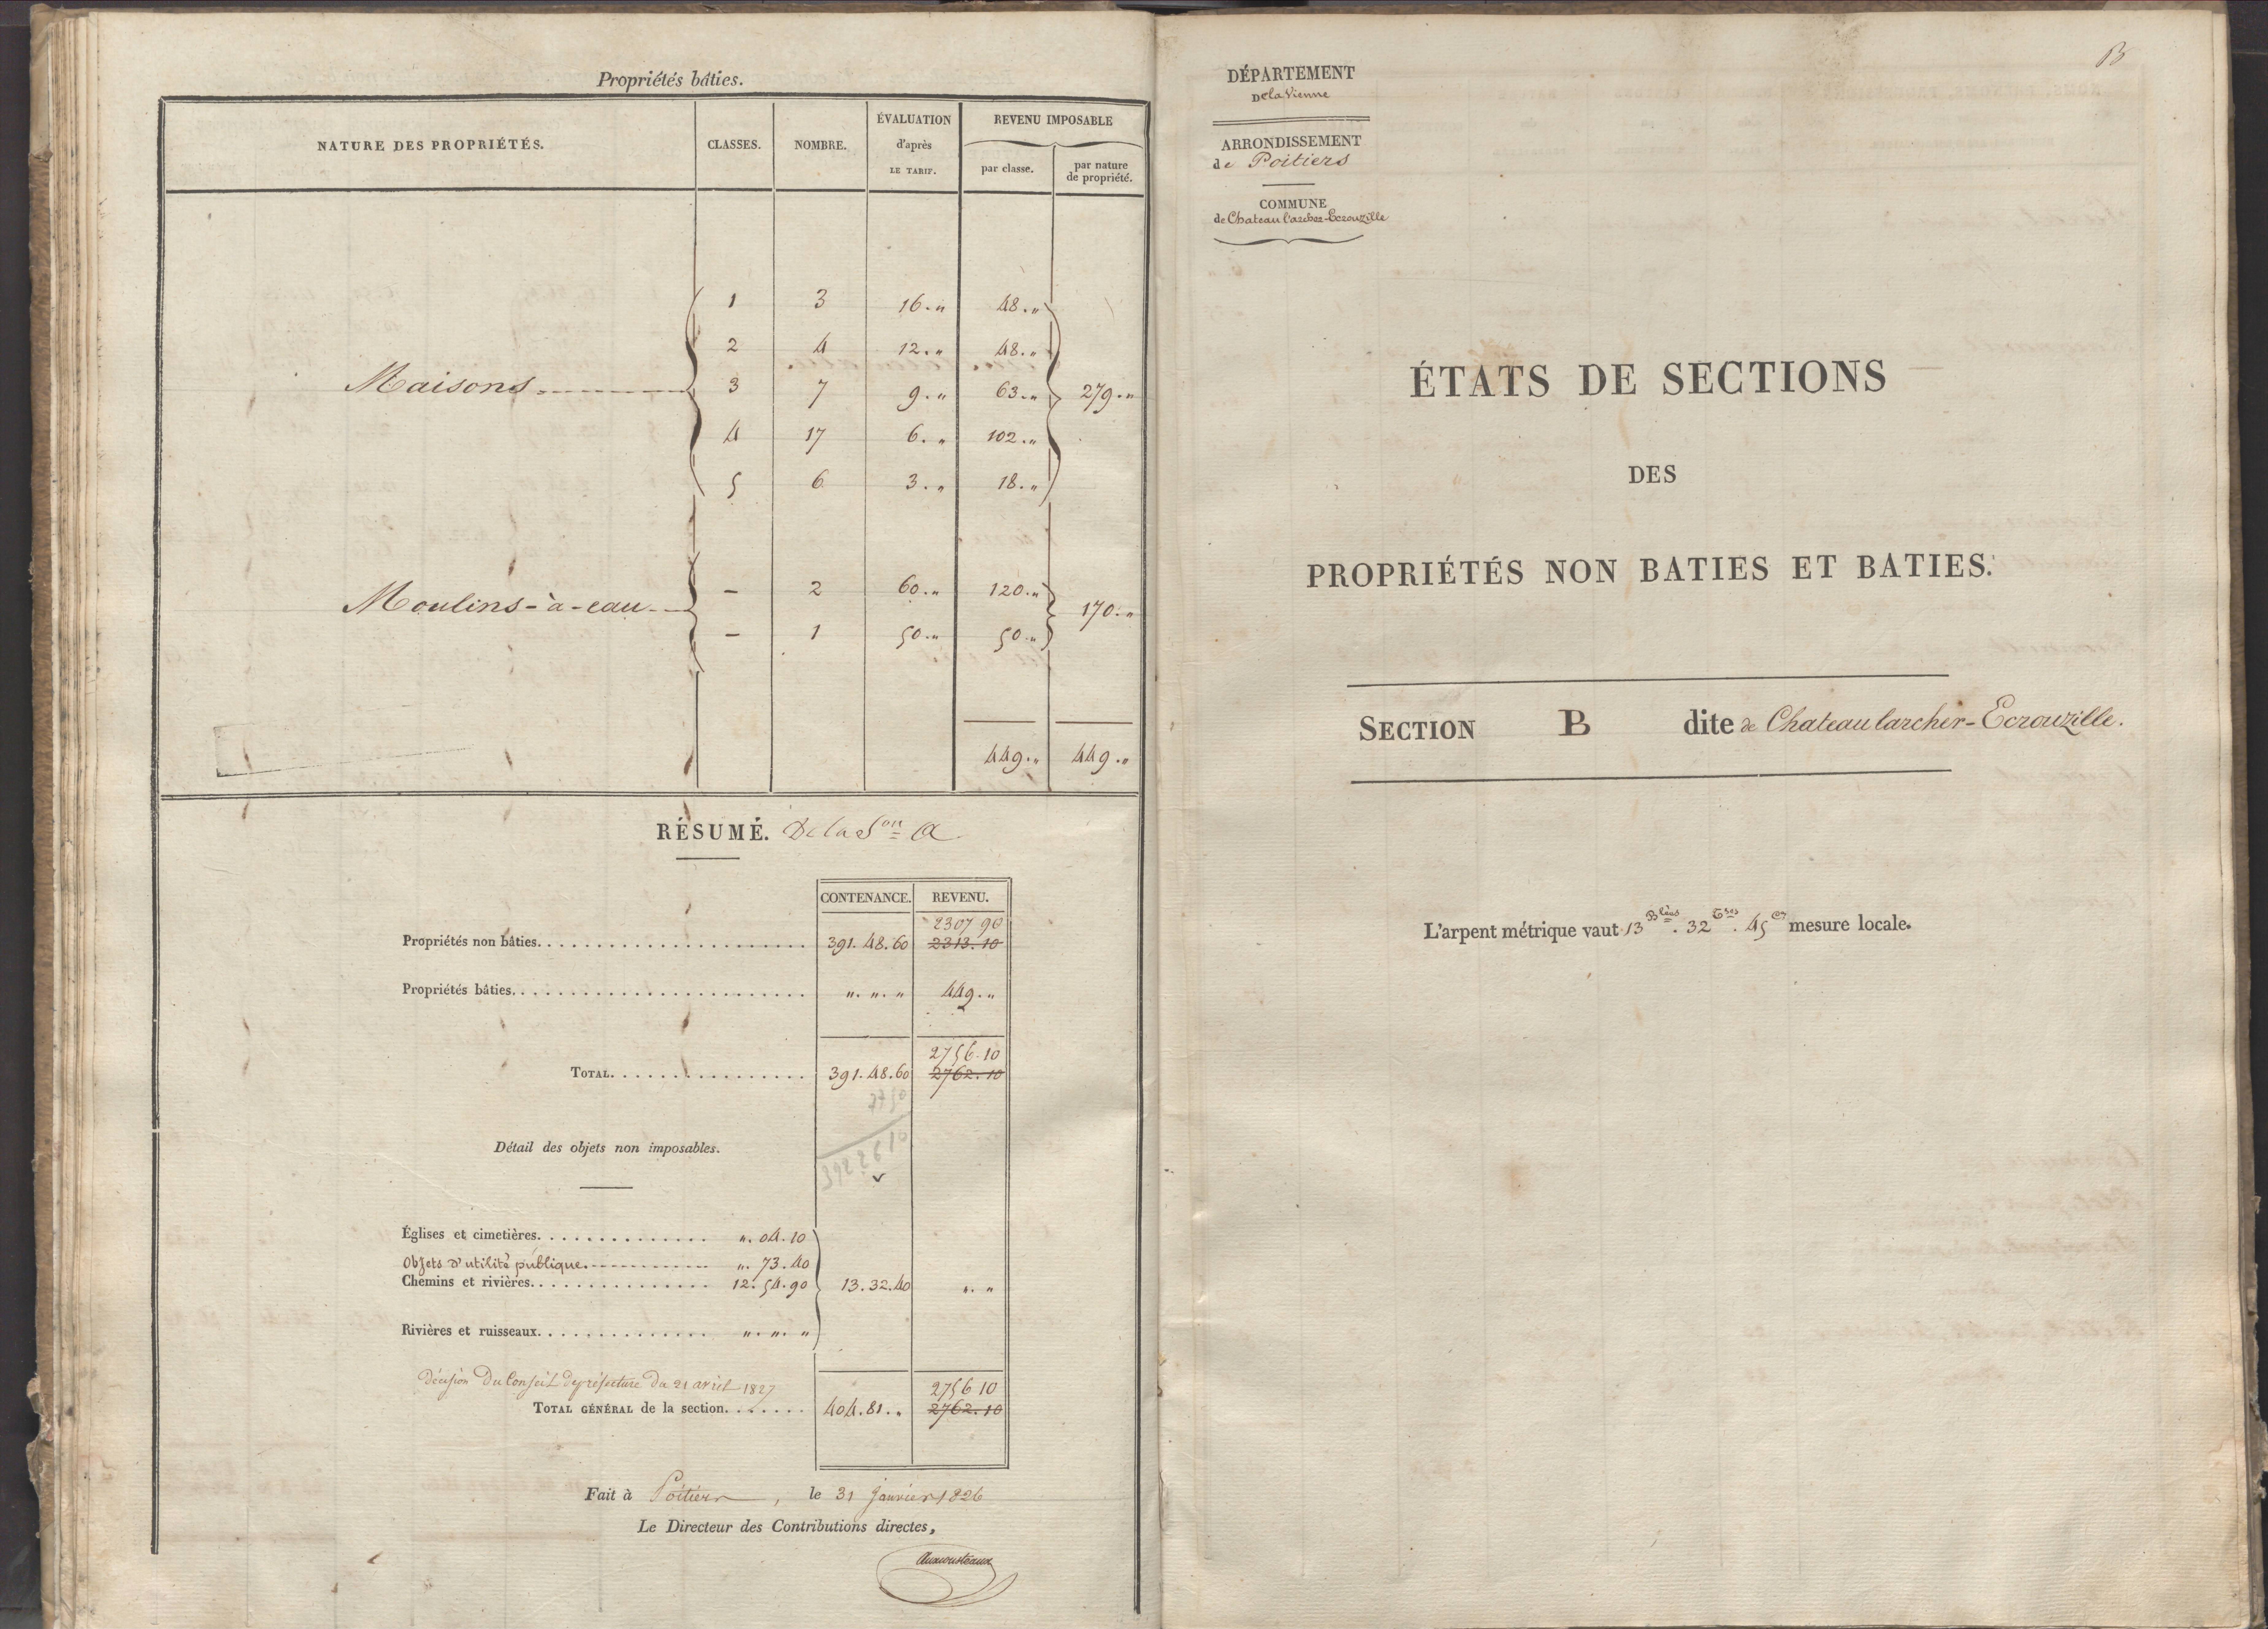 Propriétés bâties.
NATURE DES PROPRIÉTÉS. CLASSES. NOMBRE. ÉVALUATION d'après LE TARIF. REVENU IMPOSABLE
par classe. par nature de propriété.
1 3 16.〃 48.〃
2 4 12.〃 48.〃
Maisons 3 7 9.〃 63.〃 279.〃
4 17 6.〃 102.〃
5 6 3.〃 18.〃
Moulins-à-eau - 2 60.〃 120.〃 170.〃
- 1 50.〃 50.〃
449.〃 449.〃
RÉSUMÉ. De la Son A
CONTENANCE. REVENU.
2307 90
Propriétés non bâties. 391.48.60 2313.10
Propriétés bâties. 〃.〃.〃 449.〃
2756.10
TOTAL. 391.48.60 2762.10
2750
Détail des objets non imposables.
3922610
Églises et cimetières. 〃.04.10
Objets d'utilité publique. 〃.73.40
Chemins et rivières. 12.54.90 13.32.40 〃.〃
Rivières et ruisseaux. 〃.〃.〃
Décision Du Conseil de préfecture Du 21 avril 1827
2756 10
TOTAL GÉNÉRAL de la section. 404.81.〃 2762.10
Fait à Poitiers, le 31 janvier 1826
Le Directeur des Contributions directes,
B
DÉPARTEMENT
De la Vienne
ARRONDISSEMENT
de Poitiers
COMMUNE
de Chateau l'archer-Ecrouzille
ÉTATS DE SECTIONS
DES
PROPRIÉTÉS NON BATIES ET BATIES.
SECTION B dite de Chateaularcher-Ecrouzille.
L'arpent métrique vaut 13 Blées. 32 . 45 mesure locale.